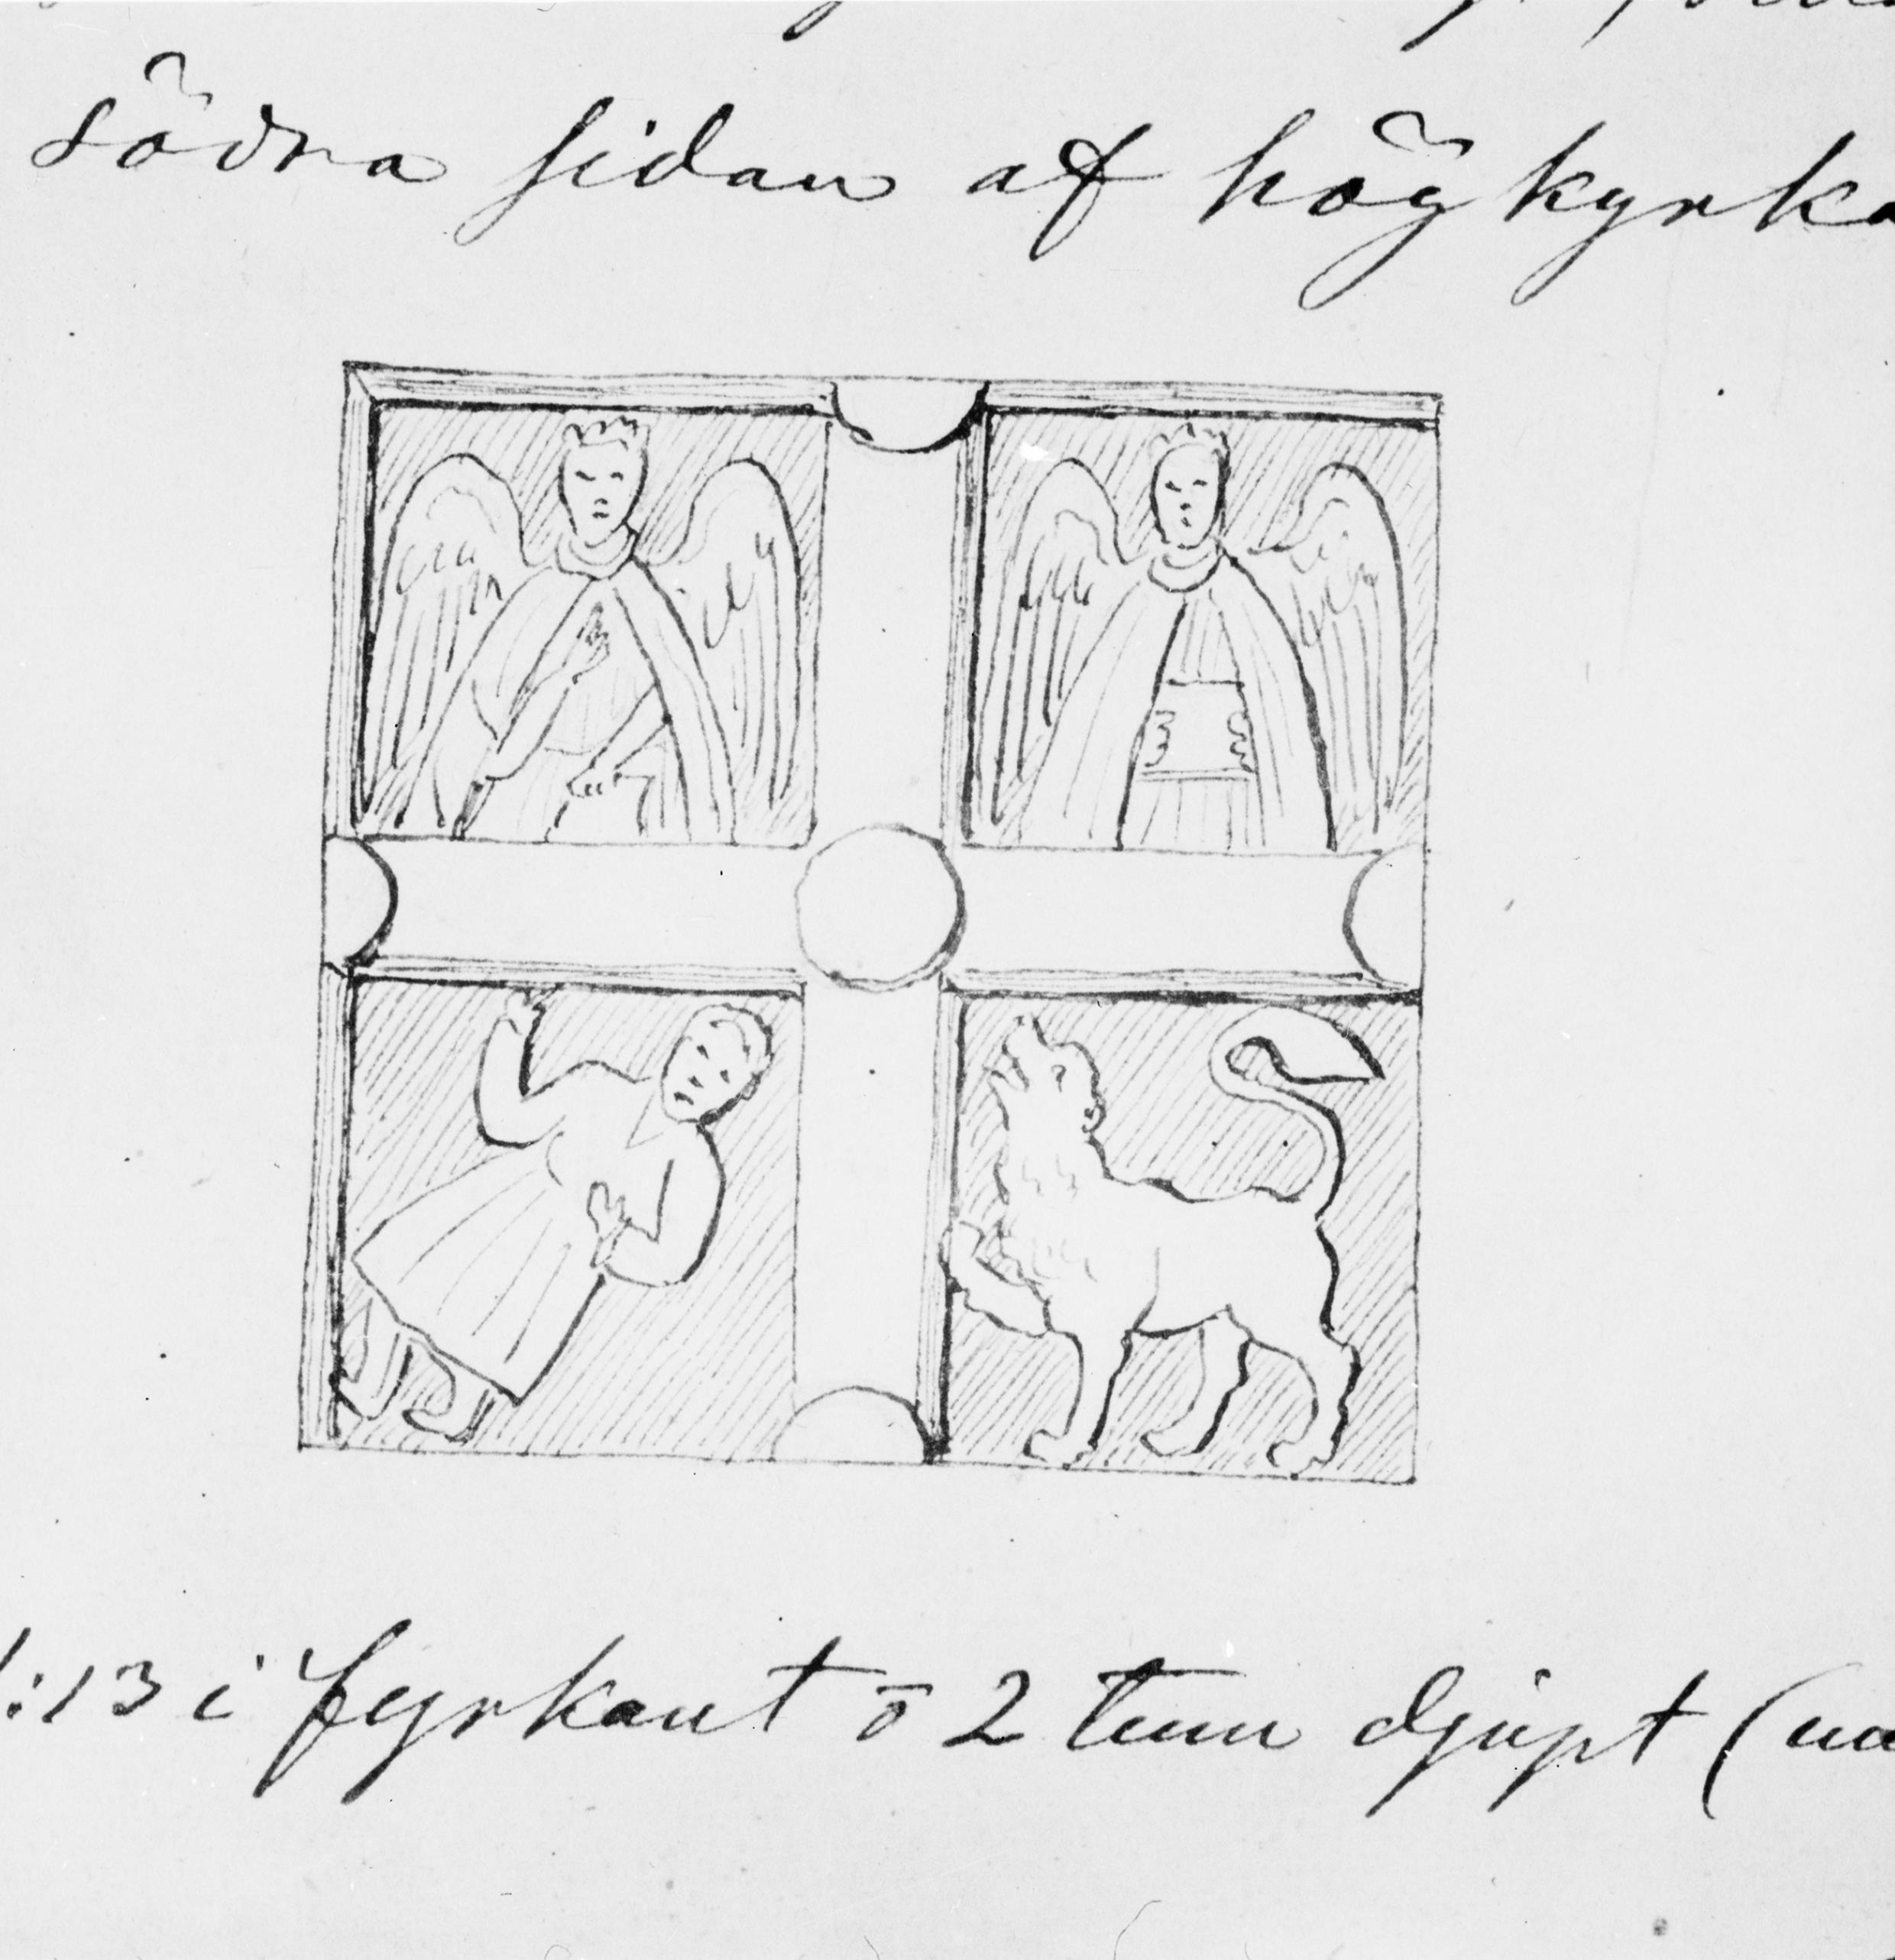 södra sidan af högkyrka
:13 i fyrkant o 2 tum djupt (